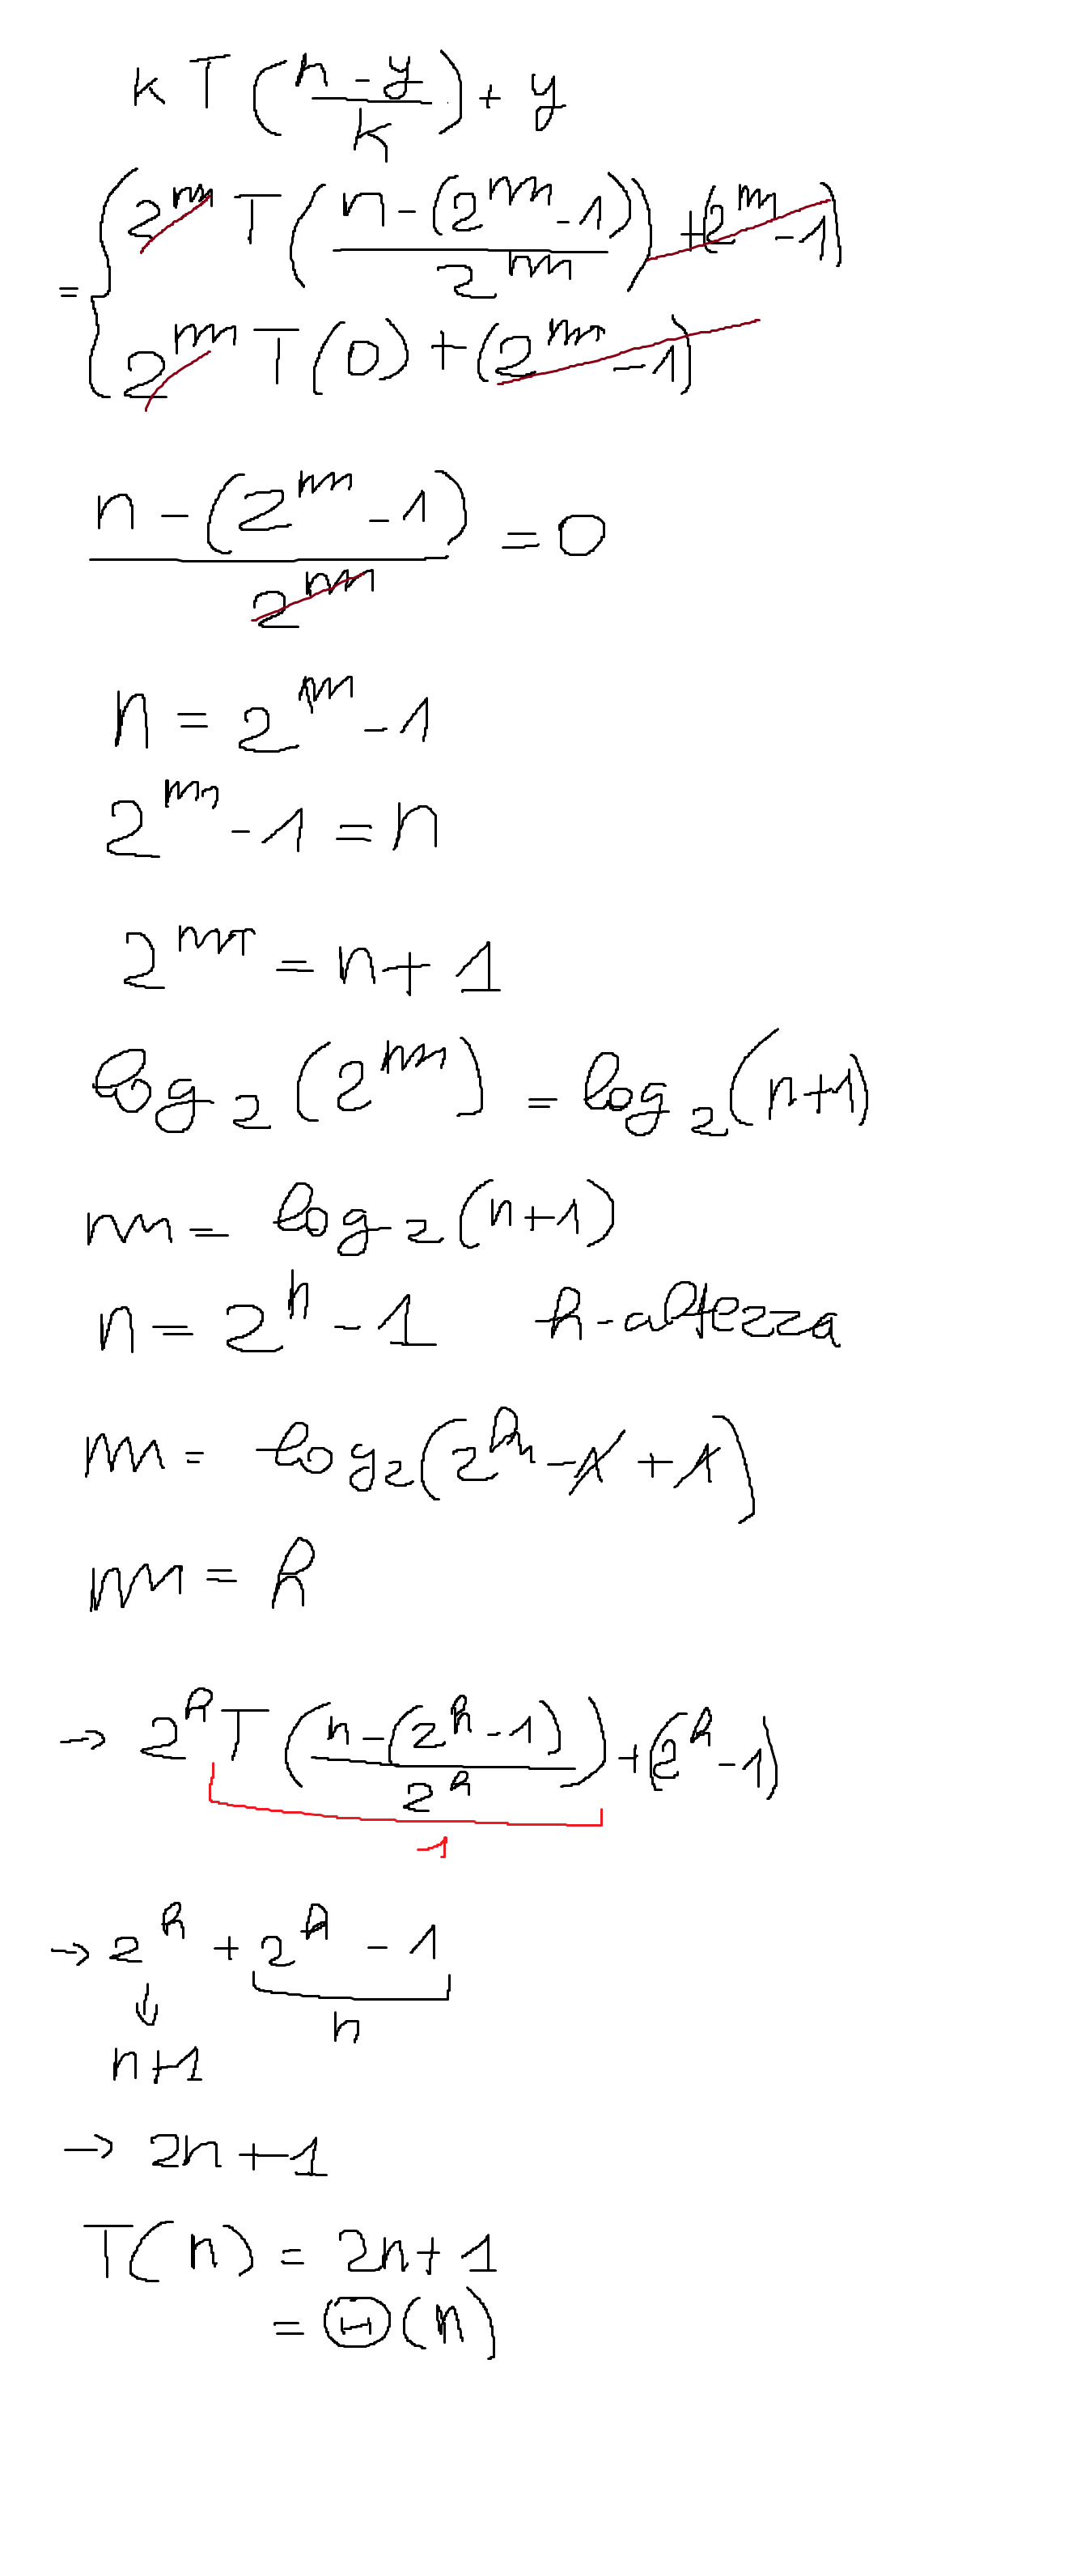 k T((n-y)/k) + y
= { 2^m T((n-(2^m-1))/2^m) + (2^m-1)
2^m T(0) + (2^m-1)
(n-(2^m-1))/2^m = 0
n = 2^m - 1
2^m - 1 = n
2^m = n + 1
log₂(2^m) = log₂(n+1)
m = log₂(n+1)
n = 2^h - 1 h-altezza
m = log₂(2^h - 1 + 1)
m = h
→ 2^h T((n-(2^h-1))/2^h) + (2^h-1)
1
→ 2^h + 2^h - 1
↓ n
n+1
→ 2n+1
T(n) = 2n+1
= Θ(n)